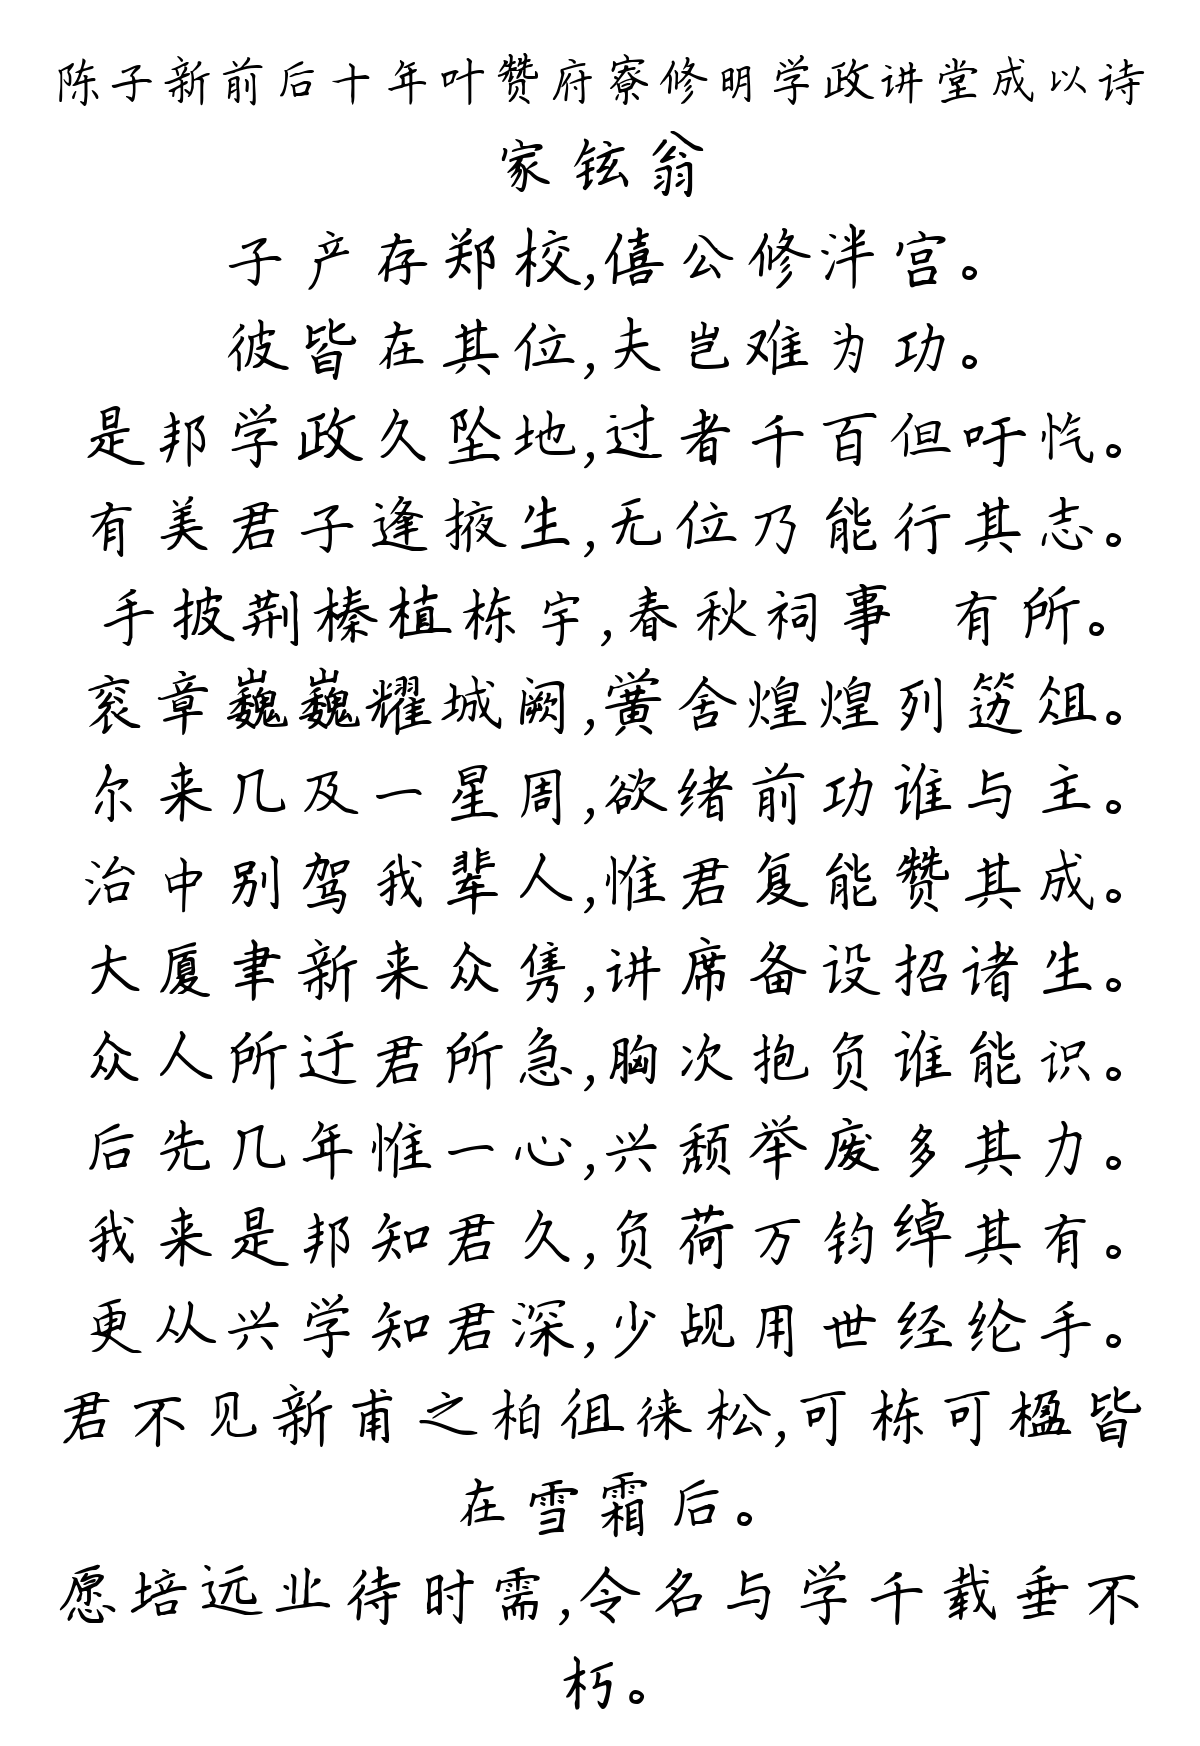 陈子新前后十年叶赞府寮修明学政讲堂成以诗
家铉翁
子产存郑校,僖公修泮宫。
彼皆在其位,夫岂难为功。
是邦学政久坠地,过者千百但吁忾。
有美君子逢掖生,无位乃能行其志。
手披荆榛植栋宇,春秋祠事 有所。
衮章巍巍耀城阙,黉舍煌煌列笾俎。
尔来几及一星周,欲绪前功谁与主。
治中别驾我辈人,惟君复能赞其成。
大厦聿新来众隽,讲席备设招诸生。
众人所迂君所急,胸次抱负谁能识。
后先几年惟一心,兴颓举废多其力。
我来是邦知君久,负荷万钧绰其有。
更从兴学知君深,少觇用世经纶手。
君不见新甫之柏徂徕松,可栋可楹皆
在雪霜后。
愿培远业待时需,令名与学千载垂不
朽。